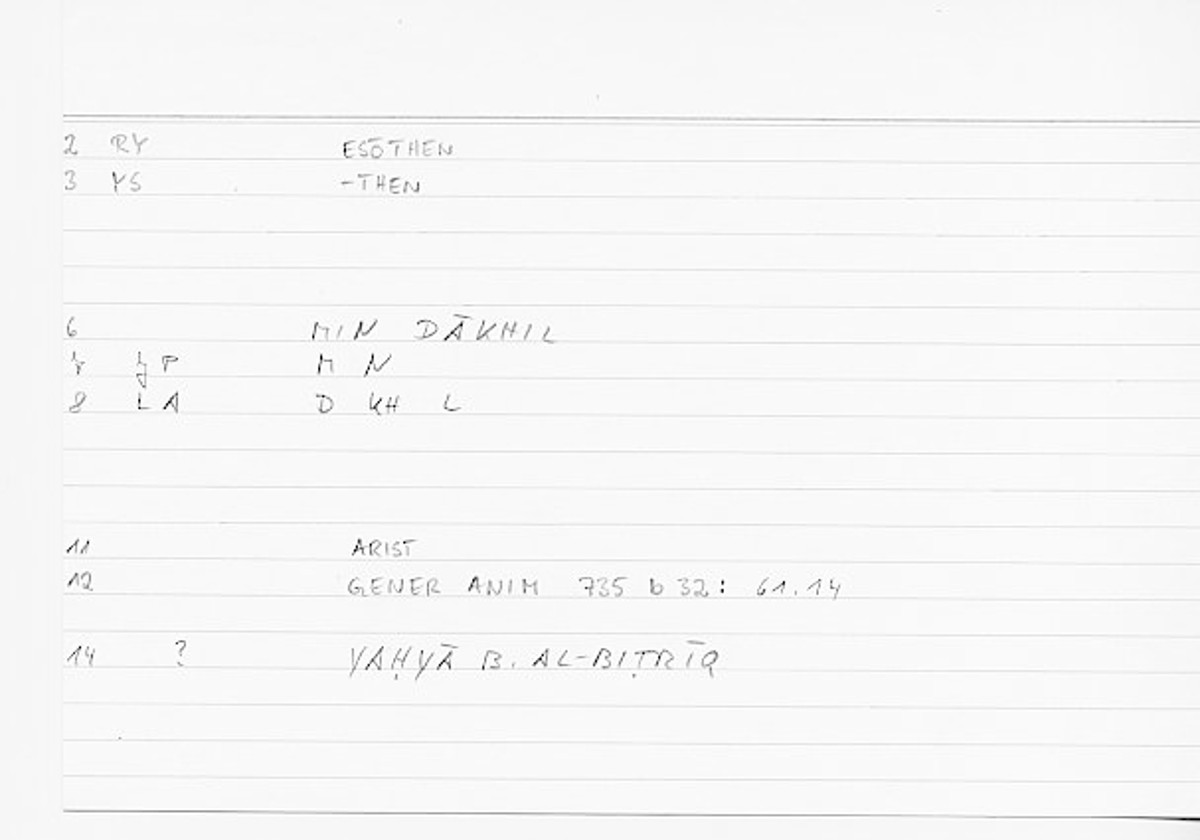 2 RY ESŌTHEN
3 YS -THEN
6 MIN DĀKHIL
7 P M N
8 LA D KH L
11 ARIST
12 GENER ANIM 735 b 32: 61.14
14 ? YAḤYĀ B. AL-BIṬRĪQ